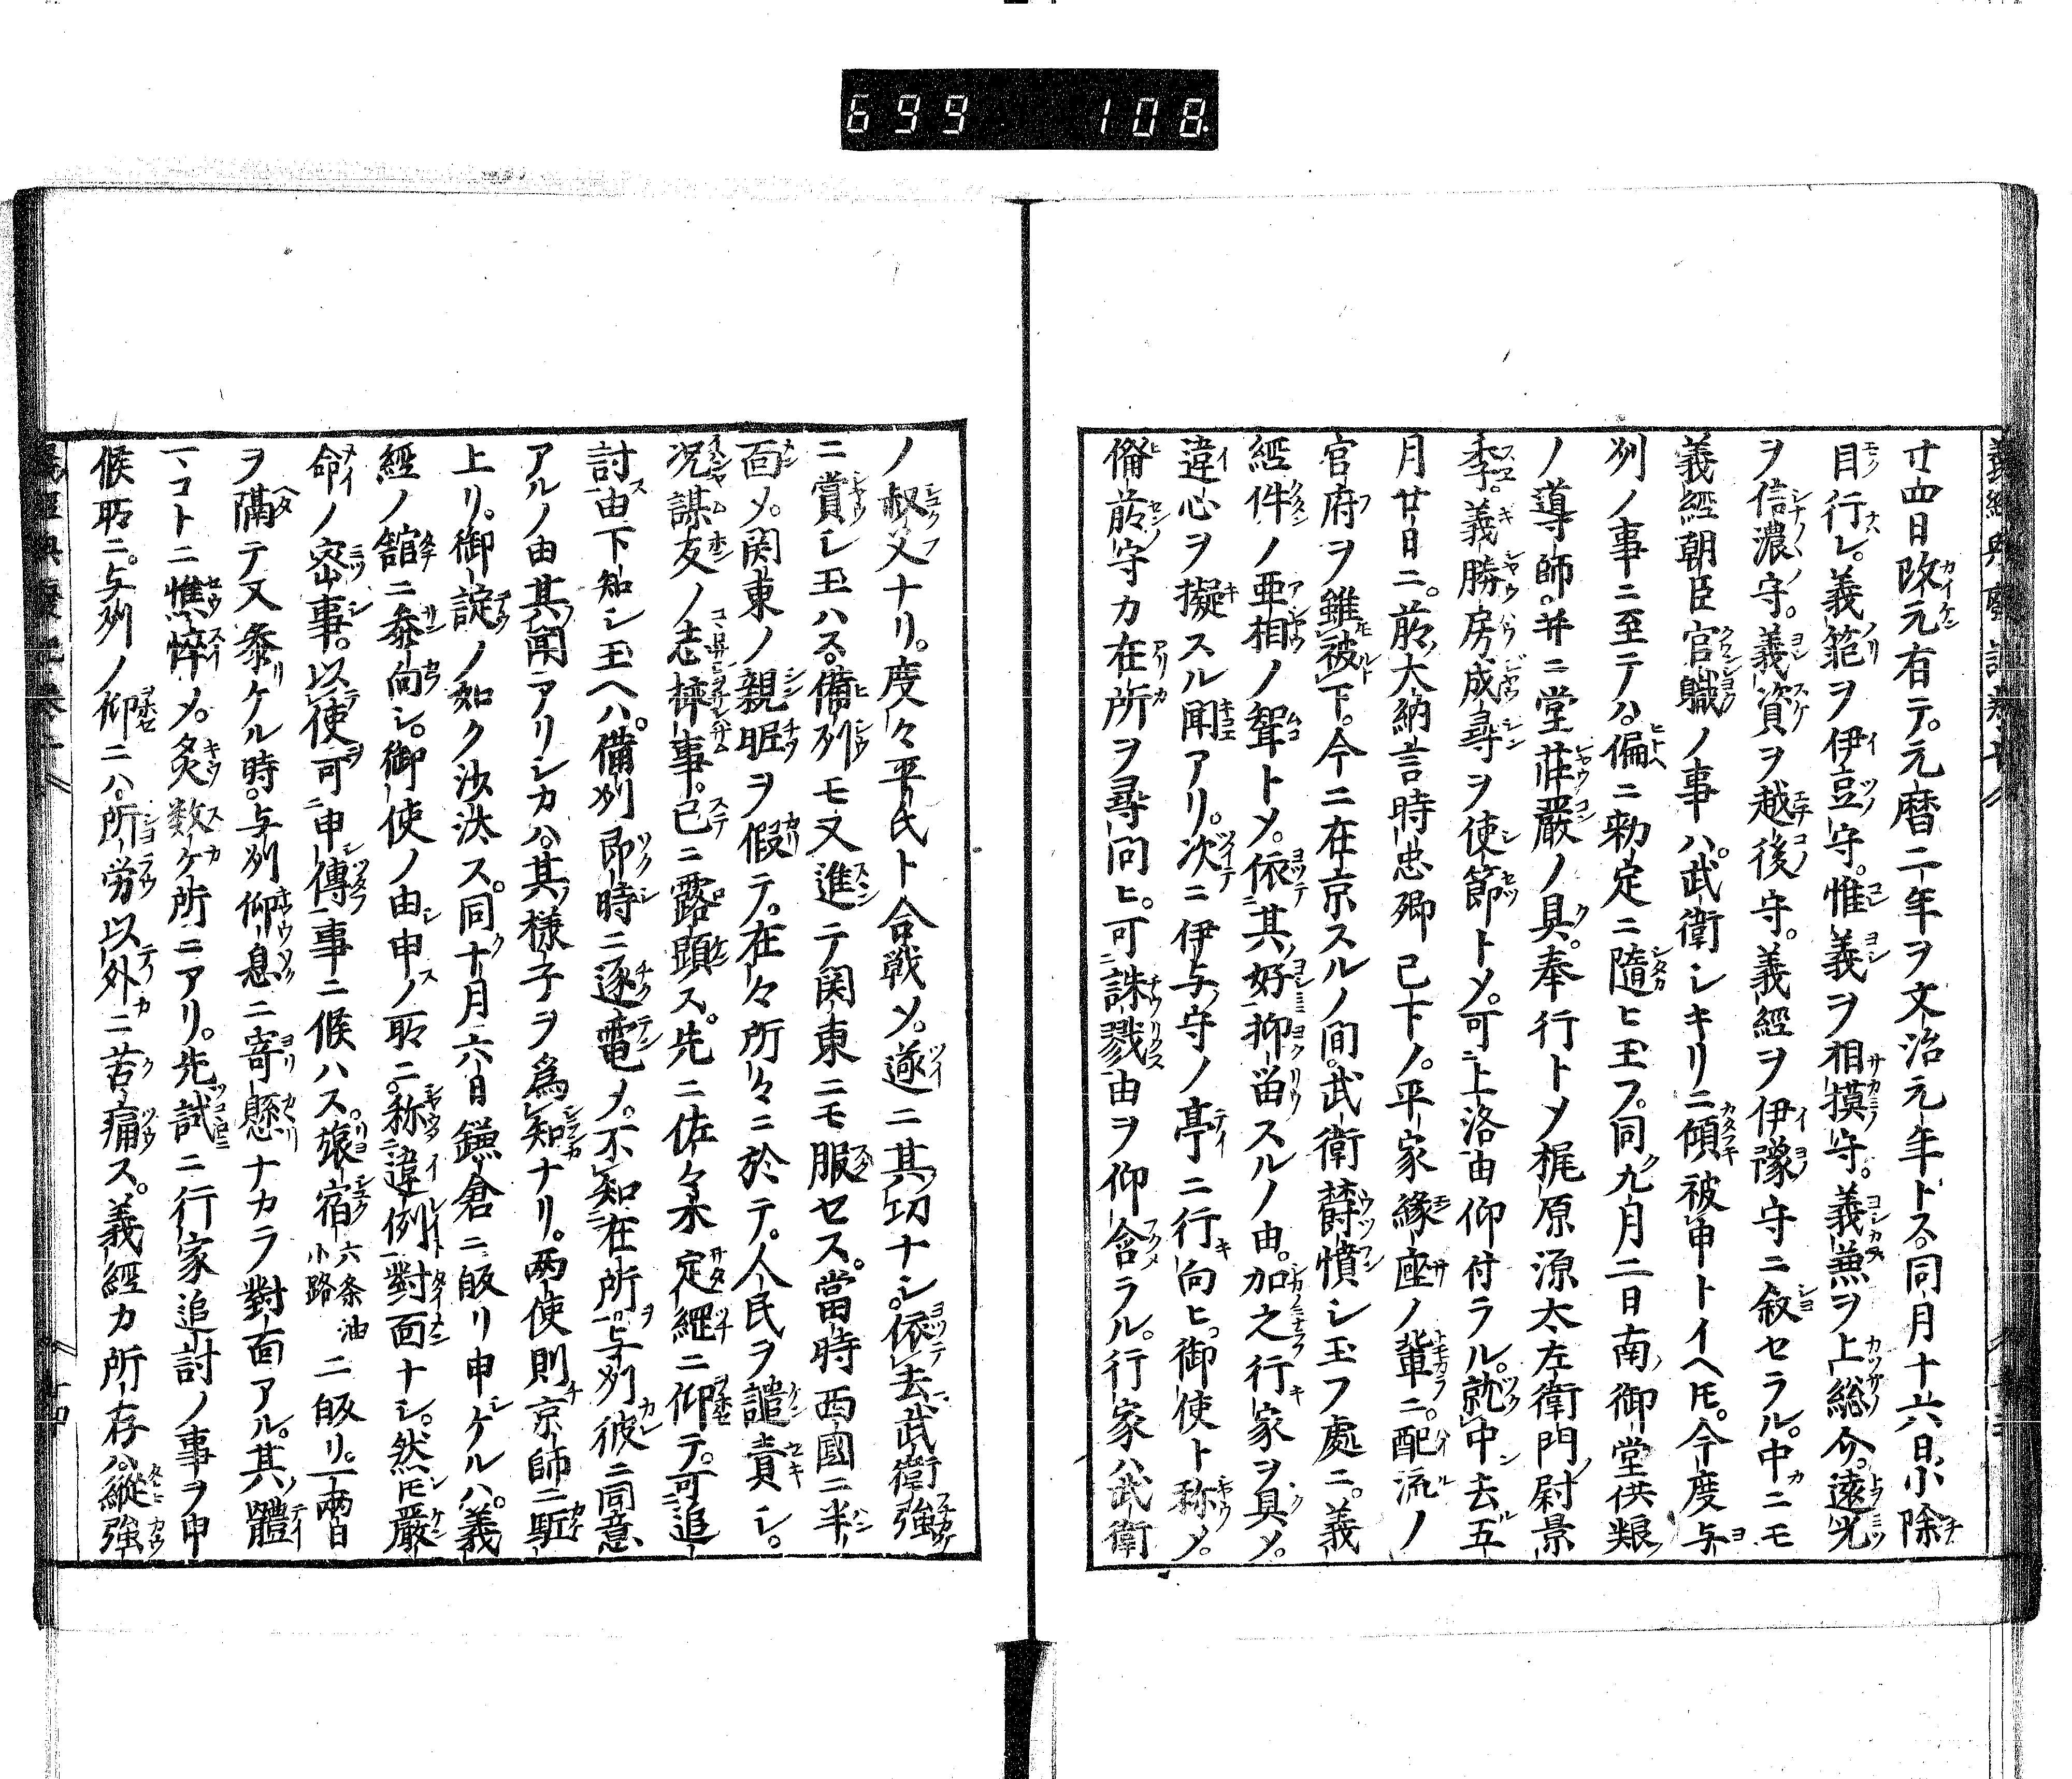 699 108.
廿四日改元有テ。元暦二年ヲ文治元年トス。同月十六日。小除
目行レ。義範ヲ伊豆守。惟義ヲ相摸守。義兼ヲ上総介。遠光
ヲ信濃守。義資ヲ越後守。義經ヲ伊豫守ニ敘セラル。中ニモ
義經朝臣官職ノ事ハ。武衛シキリニ傾被申トイヘ𪜈。今度与
州ノ事ニ至テハ。偏ニ勅定ニ隨ヒ玉フ。同九月二日南御堂供粮
ノ導師。并ニ堂荘嚴ノ具。奉行トメ梶原源太左衛門尉景
季。義勝房成尋ヲ使節トメ。可上洛由仰付ラル。就中去五
月廿日ニ。前大納言時忠卿已下ノ。平家縁座ノ輩ニ。配流ノ
官府ヲ雖被下。今ニ在京スルノ間。武衛欝憤シ玉フ處ニ。義
經件ノ亜相ノ聟トメ。依其好抑畄スルノ由。加之行家ヲ具メ。
違心ヲ擬スル聞アリ。次ニ伊与守ノ亭ニ行向ヒ。御使ト称メ。
備前守カ在所ヲ尋問ヒ。可誅戮由ヲ仰含ラル。行家ハ武衛
ノ叔父ナリ。度々平氏ト合戦メ。遂ニ其功ナシ。依去武衛強
ニ賞シ玉ハス。備州モ又進テ関東ニモ服セス。當時西國ニ半
面メ。関東ノ親昵ヲ假テ。在々所々ニ於テ。人民ヲ譴責シ。
况謀反ノ志椊事。已ニ露顕ス。先ニ佐々木定綱ニ仰テ。可追
討由下知シ玉ヘハ。備州即時ニ逐電メ。不知在所。与州彼ニ同意
アルノ由其聞アリシカハ。其様子ヲ為知ナリ。両使則京師ニ駈
上リ。御諚ノ如ク沙汰ス。同十月六日鎌倉ニ皈リ申ケルハ。義
經ノ舘ニ参向シ。御使ノ由申ノ所ニ。称違例對面ナシ。然𪜈嚴
命ノ密事。以使可申傳事ニ候ハス。旅宿六条油小路ニ皈リ。一両日
ヲ隔テ又参ケル時。与州仰息ニ寄懸ナカラ對面アル。其體
一コトニ憔悴メ。灸数ケ所ニアリ。先試ニ行家追討ノ事ヲ申
候所ニ。与州ノ仰ニハ。所労以外ニ苦痛ス。義經カ所存ハ。縦強